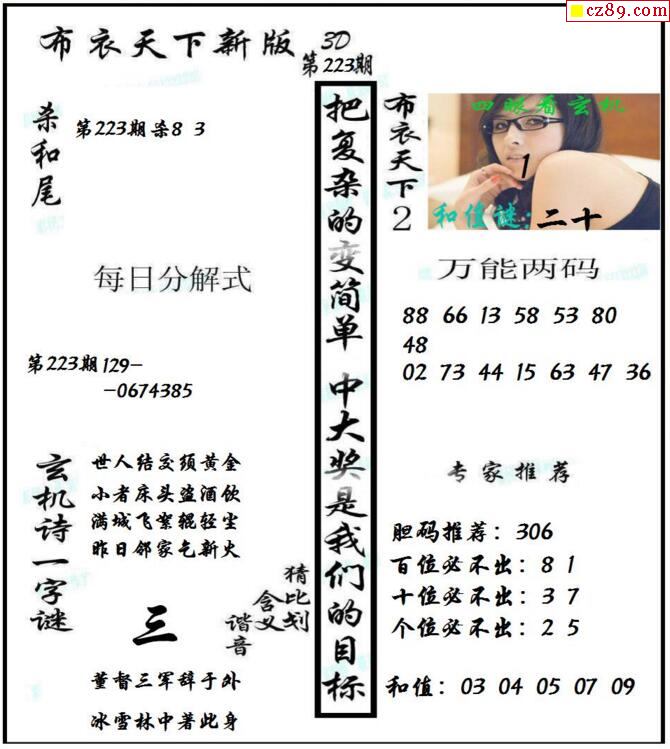 cz89.com
布衣天下新版 3D
第223期
杀和尾
第223期杀8 3
每日分解式
第223期 129-
-0674385
玄机诗一字谜
世人结交须黄金
小者床头盗酒饮
满城飞絮辊轻尘
昨日邻家乞新火
三
猜比划
含义
谐音
董督三军辞于外
冰雪林中著此身
把复杂的变简单 中大奖是我们的目标
布衣天下2
四眼看玄机
1
和值谜:二十
万能两码
88 66 13 58 53 80
48
02 73 44 15 63 47 36
专家推荐
胆码推荐: 306
百位必不出: 8 1
十位必不出: 3 7
个位必不出: 2 5
和值: 03 04 05 07 09